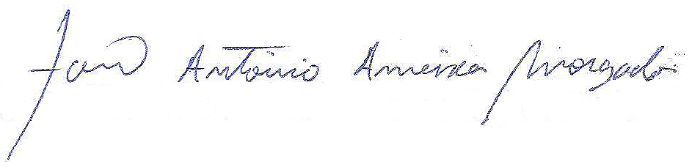 João António Ameixa Morgado